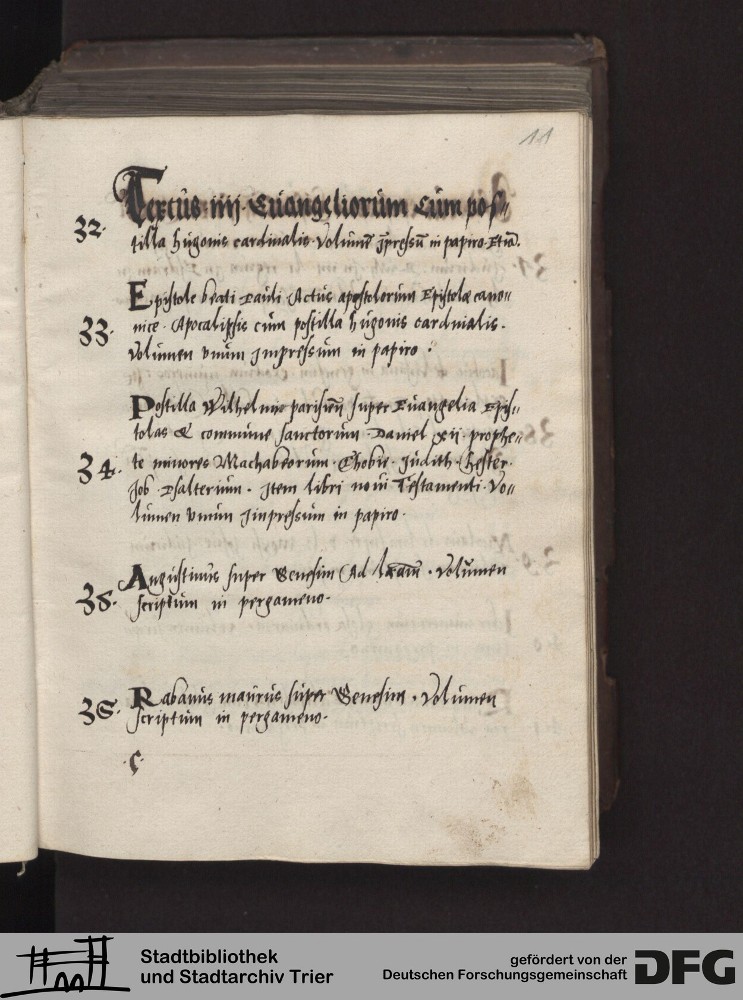 11
Textus iiij Euangeliorum cum pos„
32. tilla hugonis cardinalis Volumē Jpressū in papiro
Epistole beati Pauli Actus apostolorum Epistole cano„
33. nice. Apocalipsis cum postilla hugonis cardinalis.
Volumen vnum Impressum in papiro:
Postilla Wilhelmi parisieñ super Euangelia Epis„
tolas & commune sanctorum Daniel xij prophe„
34. te minores Machabeorum. Thobie. Judith. Hester.
Job Psalterium. Item libri noui Testamenti. Vo„
lumen vnum Jmpressum in papiro.
Augustinus super Genesim Ad lr̄am. Volumen
38. scriptum in pergameno.
Rabanus maurus super Genesim. Volumen
scriptum in pergameno.
.c.
Stadtbibliothek
und Stadtarchiv Trier
gefördert von der
Deutschen Forschungsgemeinschaft
DFG